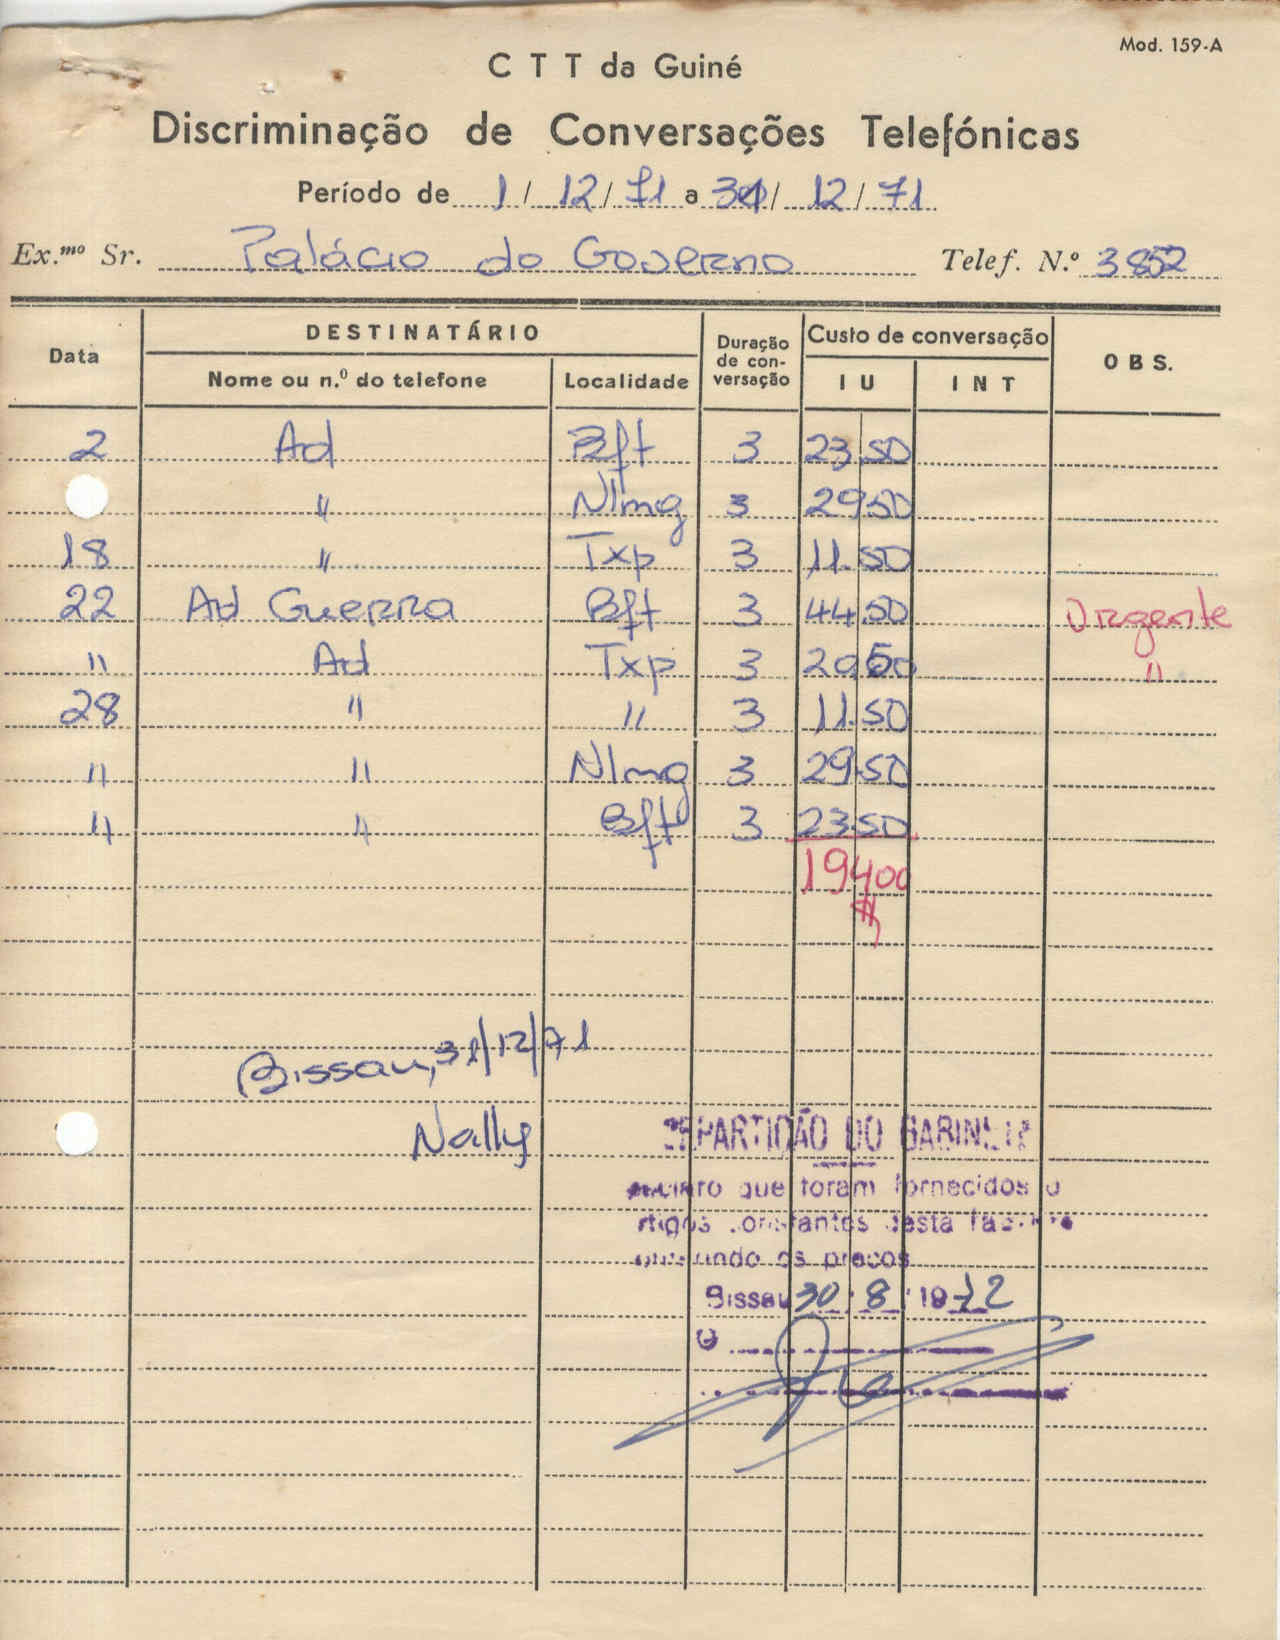 Mod. 159-A
C T T da Guiné
Discriminação de Conversações Telefónicas
Período de 1 / 12 / 71 a 31 / 12 / 71
Ex.mo Sr. Palácio do Governo Telef. N.º 3852
Data DESTINATÁRIO Duração de con-versação Custo de conversação OBS.
Nome ou n.º do telefone Localidade I U I N T
2 Ad Bft 3 23.50
" Nlmg 3 29.50
18 " Txp 3 11.50
22 Ad Guerra Bft 3 44.50 Urgente
" Ad Txp 3 20.50 "
28 " " 3 11.50
" " Nlmg 3 29.50
" " Bft 3 23.50
194.00
Bissau, 31/12/71
Nally
REPARTIÇÃO DO GABINETE
que foram fornecidos o
artigos constantes desta
os preços
Bissau 30 / 8 / 1972
O